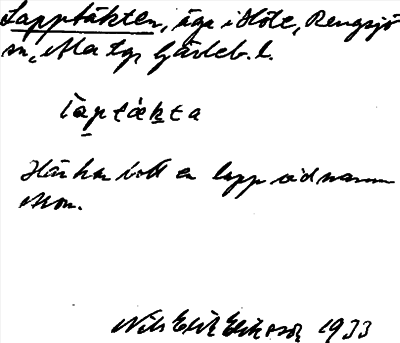 Lapptäkten, äga i Höle, Rengsjö
sn, Ala tgs Gävleb. l.
laptäkta
Här har bott en lapp vid namn
Mon.
Nils Erik Eriksson 1933